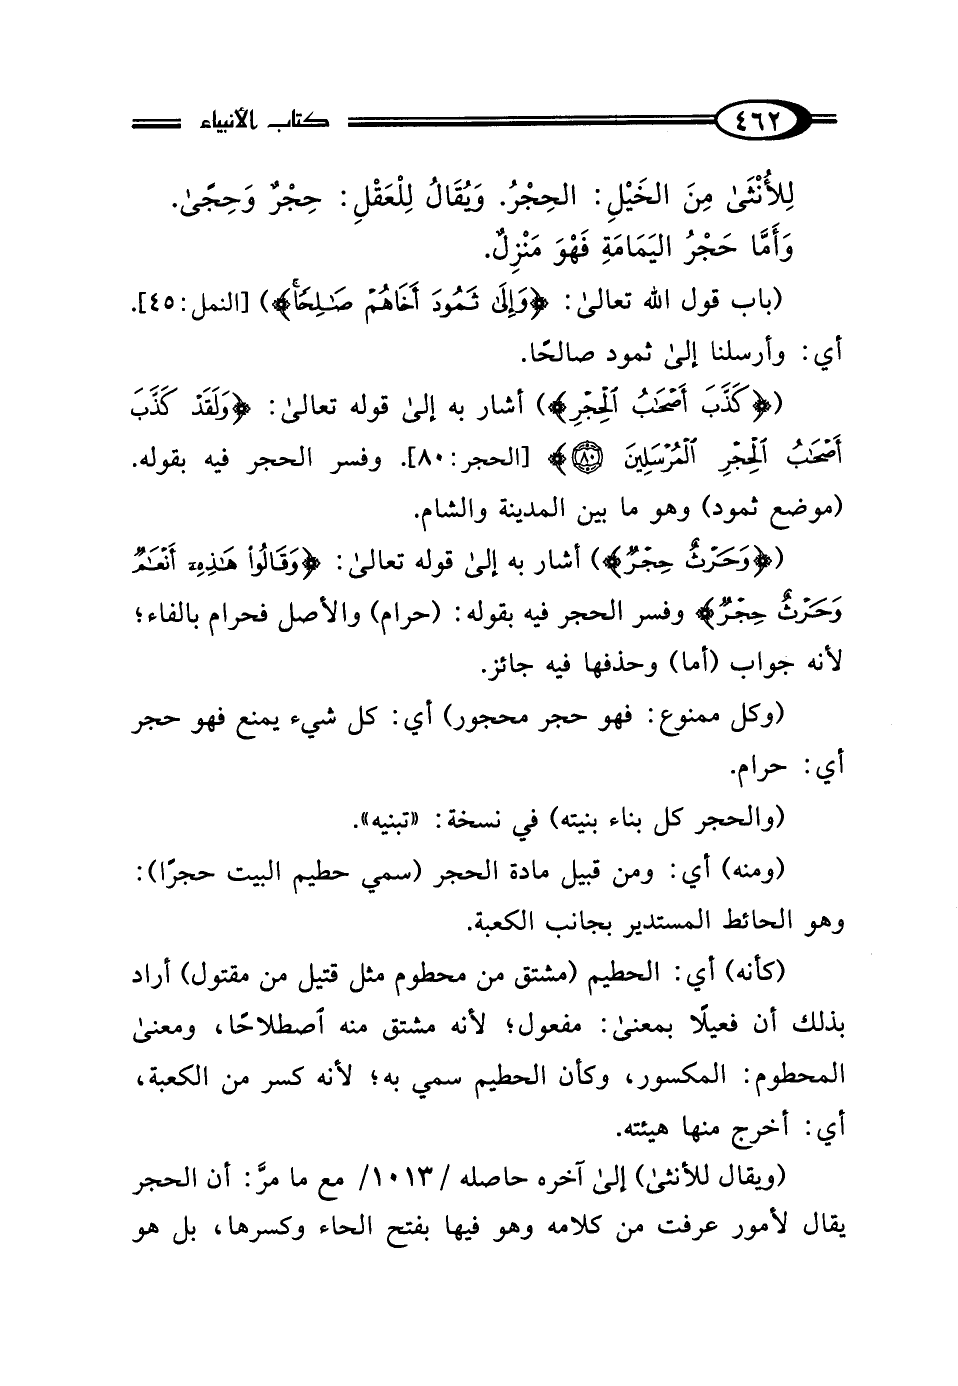 ٤٦٢ كتاب الأنبياء
لِلأُنْثَىٰ مِنَ الخَيْلِ: الحِجْرُ. وَيُقَالُ لِلْعَقْلِ: حِجْرٌ وَحِجًىٰ.
وَأَمَّا حَجْرُ اليَمَامَةِ فَهْوَ مَنْزِلٌ.
(باب قول الله تعالىٰ: ﴿وَإِلَىٰ ثَمُودَ أَخَاهُمْ صَـٰلِحًاۚ﴾) [النمل: ٤٥].
أي: وأرسلنا إلىٰ ثمود صالحًا.
(﴿كَذَّبَ أَصْحَـٰبُ ٱلْحِجْرِ﴾) أشار به إلىٰ قوله تعالىٰ: ﴿وَلَقَدْ كَذَّبَ
أَصْحَـٰبُ ٱلْحِجْرِ ٱلْمُرْسَلِينَ ٨٠﴾ [الحجر: ٨٠]. وفسر الحجر فيه بقوله.
(موضع ثمود) وهو ما بين المدينة والشام.
(﴿وَحَرْثٌ حِجْرٌ﴾) أشار به إلىٰ قوله تعالىٰ: ﴿وَقَالُوا۟ هَـٰذِهِۦٓ أَنْعَـٰمٌ
وَحَرْثٌ حِجْرٌ﴾ وفسر الحجر فيه بقوله: (حرام) والأصل فحرام بالفاء؛
لأنه جواب (أما) وحذفها فيه جائز.
(وكل ممنوع: فهو حجر محجور) أي: كل شيء يمنع فهو حجر
أي: حرام.
(والحجر كل بناء بنيته) في نسخة: «تبنيه».
(ومنه) أي: ومن قبيل مادة الحجر (سمي حطيم البيت حجرًا):
وهو الحائط المستدير بجانب الكعبة.
(كأنه) أي: الحطيم (مشتق من محطوم مثل قتيل من مقتول) أراد
بذلك أن فعيلًا بمعنىٰ: مفعول؛ لأنه مشتق منه ٱصطلاحًا، ومعنىٰ
المحطوم: المكسور، وكأن الحطيم سمي به؛ لأنه كسر من الكعبة،
أي: أخرج منها هيئته.
(ويقال للأنثىٰ) إلىٰ آخره حاصله /١٠١٣/ مع ما مرَّ: أن الحجر
يقال لأمور عرفت من كلامه وهو فيها بفتح الحاء وكسرها، بل هو